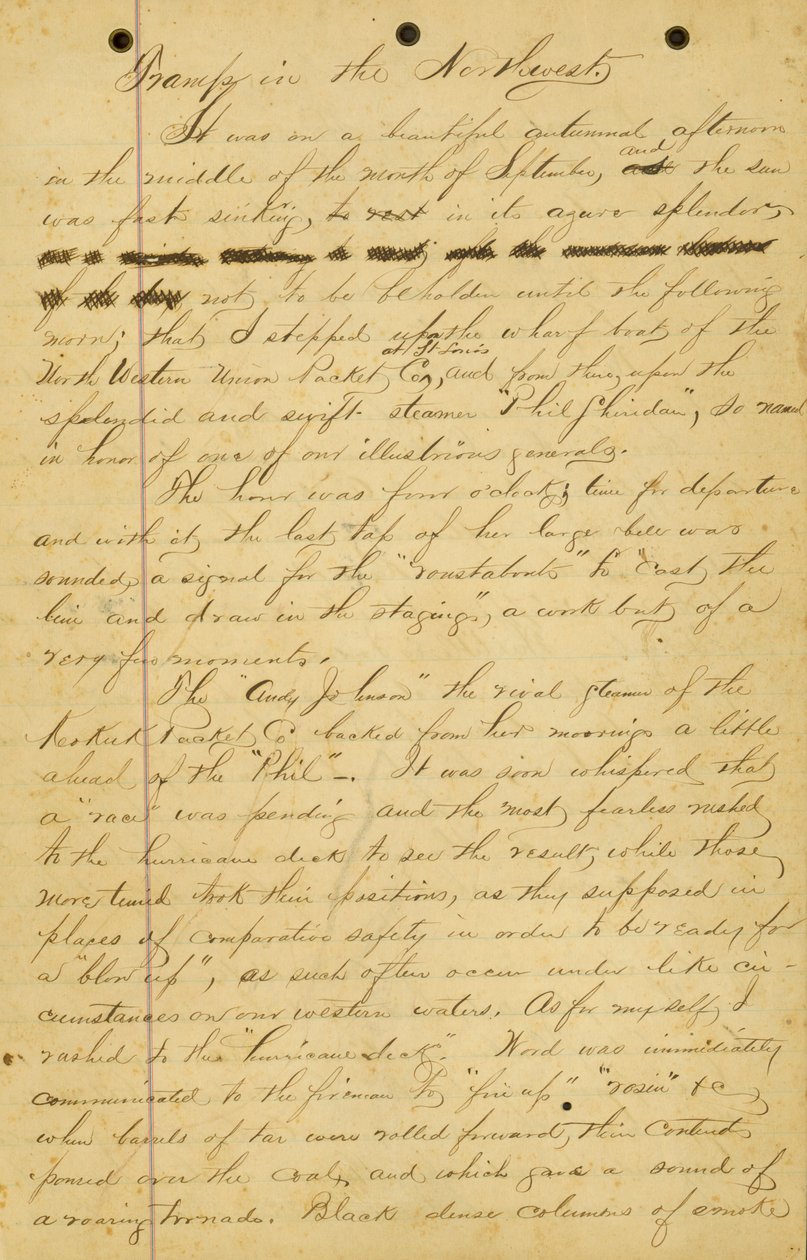 Tramp in the Northwest.
It was on a beautiful autumnal afternoon
in the middle of the month of September, and the sun
was fast sinking, to rest in its azure splendor,
not to be beholden until the following
morn; that I stepped upon the wharf boat of the
at St Louis
North Western Union Packet Co, and from there upon the
splendid and swift steamer "Phil Sheridan", so named
in honor of one of our illustrious generals.
The hour was four o'clock; time for departure
and with it, the last tap of her large bell was
sounded, a signal for the "roustabouts" to "cast the
line and draw in the stagings", a work but of a
very few moments.
The "Andy Johnson" the rival steamer of the
Keokuk Packet Co backed from her moorings a little
ahead of the "Phil"–. It was soon whispered that
a "race" was pending and the most fearless rushed
to the hurricane deck to see the result, while those
more timid took their positions, as they supposed in
places of comparative safety in order to be ready for
a "blow up", as such often occur under like cir-
cumstances on our western waters. As for myself, I
rushed to the "hurricane deck". Word was immediately
communicated to the fireman to "fire up" "rosin" &c,
when barrels of tar were rolled forward, their contents
poured over the coal, and which gave a sound of
a roaring tornado. Black dense columns of smoke